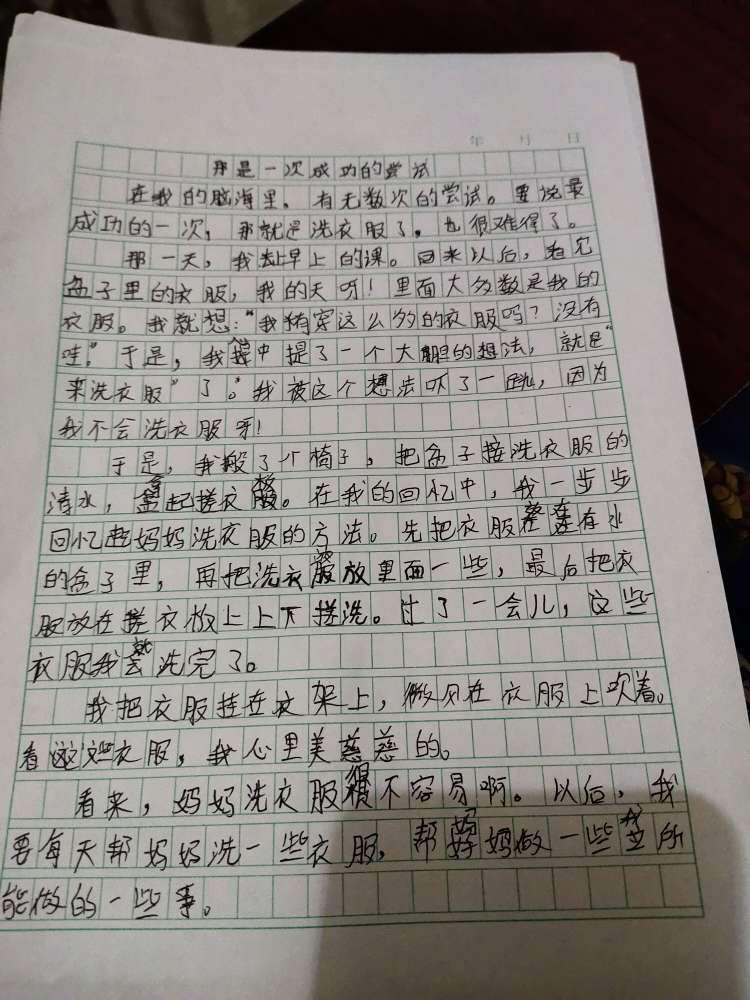 年 月 日
那是一次成功的尝试
在我的脑海里，有无数次的尝试。要说最
成功的一次，那就是洗衣服了，也很难得了。
那一天，我去上早上的课。回来以后，看见
盆子里的衣服，我的天呀！里面大多数是我的
衣服。我就想："我有穿这么多的衣服吗？没有
哇！"于是，我中提了一个大胆的想法，就是"
来洗衣服"了。我被这个想法吓了一跳，因为
我不会洗衣服呀！
于是，我般了个椅子，把盆子接洗衣服的
清水，拿起搓衣板。在我的回忆中，我一步步
回忆起妈妈洗衣服的方法。先把衣服有水
的盆子里，再把洗衣放里面一些，最后把衣
服放在搓衣板上上下搓洗。过了一会儿，这些
衣服我就洗完了。
我把衣服挂在衣架上，微风在衣服上吹着。
看这些衣服，我心里美慈慈的。
看来，妈妈洗衣服很不容易啊。以后，我
要每天帮妈妈洗一些衣服，帮妈妈做一些我所
能做的一些事。